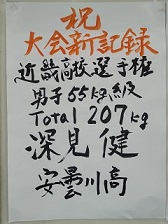 祝
大会新記録
近畿高校選手権
男子55kg級
Total 207kg
深見 健
安曇川高